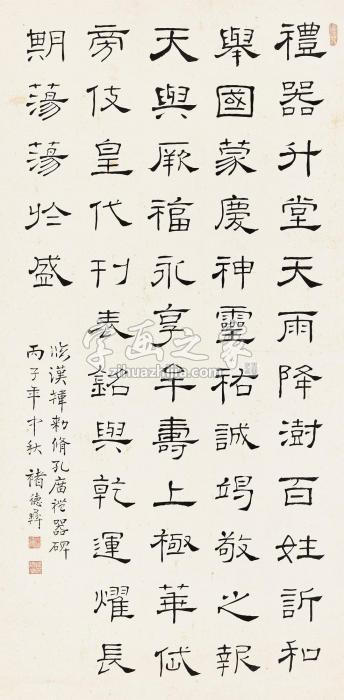 禮器升堂天雨降澍百姓訢和
舉國蒙慶神靈祐誠竭敬之報
天與厥福永享牟壽上極華
旁伎皇代刊表銘與乾運燿長
期蕩蕩於盛
臨漢韓勑脩孔禮器碑
丙子年中秋 褚德彝
字画之家
zihuazhijia.com